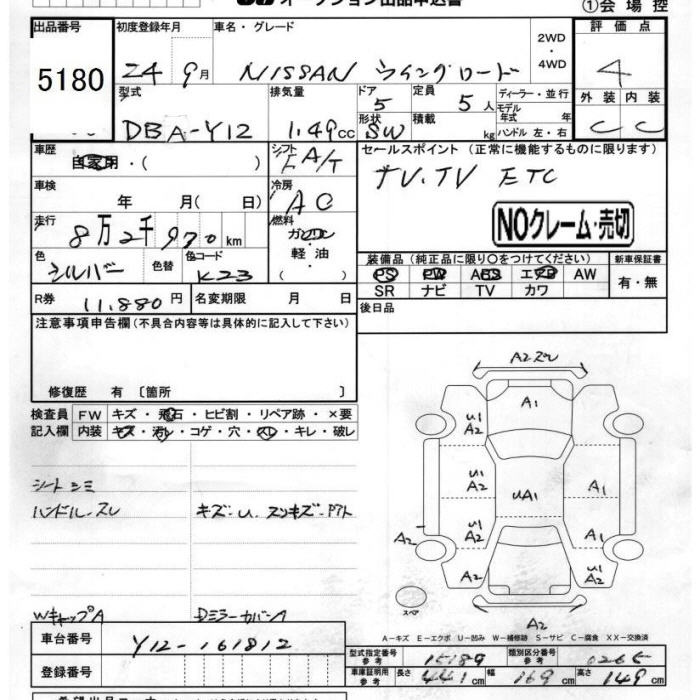 オークション出品申込書
①会場控
出品番号
5180
初度登録年月
24 9月
車名・グレード
NISSAN ウイングロード
2WD
・
4WD
評価点
4
外装 内装
C C
型式
DBA-Y12
排気量
1.49cc
ドア
5
形状
SW
定員
5人
積載
kg
ディーラー・並行
モデル
年式 年
ハンドル 左・右
車歴
自家用・( )
シフト
FA/T
車検
年 月( 日)
冷房
AC
走行
8万2千970km
燃料
ガソリン
・
軽油
・
( )
色
シルバー
色替
色コード
K23
R券
11.880円
名変期限 月 日
セールスポイント (正常に機能するものに限ります)
TV.TV ETC
NOクレーム・売切
装備品(純正品に限り○をつけてください)
PS PW ABS エアB AW
SR ナビ TV カワ
新車保証書
有・無
後日品
注意事項申告欄(不具合内容等は具体的に記入して下さい)
修復歴 有〔箇所 〕
検査員
記入欄
FW キズ・飛石・ヒビ割・リペア跡・×要
内装 キズ・汚レ・コゲ・穴・スレ・キレ・破レ
シートシミ
ハンドルスレ
キズ・U.
WキャップA
DミラーカバーA
A2スレ
A1
U1
A2
U1
A2
UA1
A1
U1
A2
A2
A2
U1
A2
スペア
A2
A-キズ E-エクボ U-凹み W-補修跡 S-サビ C-腐食 XX-交換済
車台番号
Y12-161812
登録番号
型式指定番号
参考
15189
類別区分番号
参考
車庫証明用
参考
長さ
441cm
幅
169cm
高さ
149cm